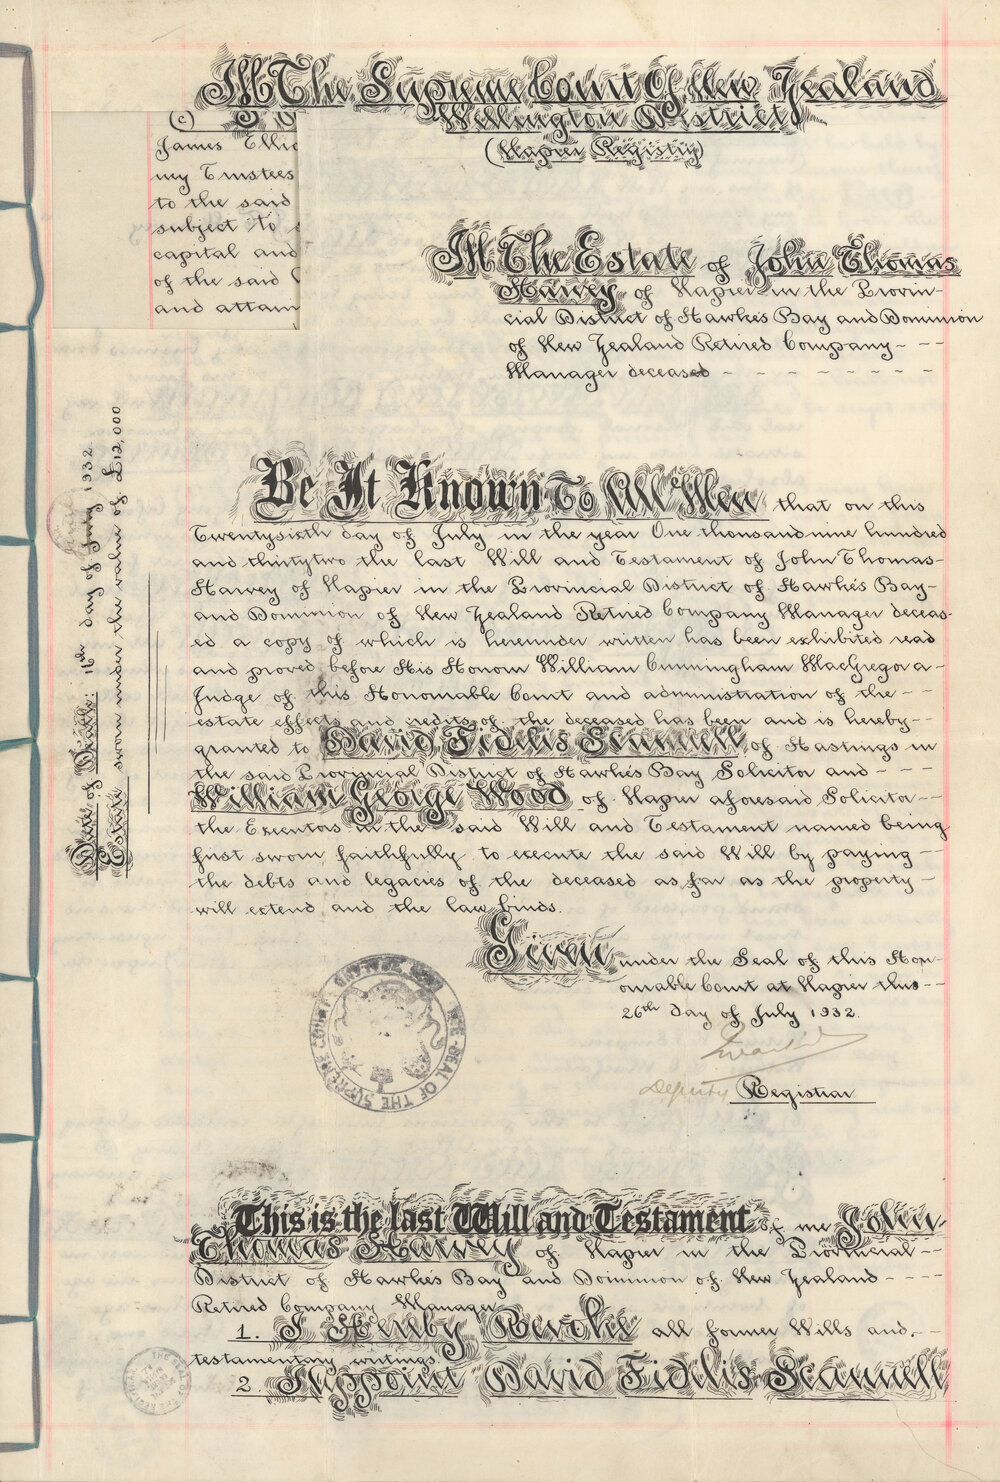 In The Supreme Court Of New Zealand
Wellington District
(Napier Registry)
(c)
James Ellio
my Trustees
to the said
subject to
capital and
of the said
and attain
In The Estate of John Thomas
Harvey of Napier in the Provin-
cial District of Hawke's Bay and Dominion
of New Zealand Retired Company - - -
Manager deceased - - - - - - - -
Date of Death: 16th day of July 1932.
Estate sworn under the value of £12,000
Be It Known To All Men that on this
Twentysixth day of July in the year One thousand nine hundred
and thirtytwo the last Will and Testament of John Thomas-
Harvey of Napier in the Provincial District of Hawke's Bay-
and Dominion of New Zealand Retired Company Manager deceas-
ed a copy of which is hereunder written has been exhibited read
and proved before His Honour William Cunningham MacGregor a-
Judge of this Honourable Court and administration of the - -
estate effects and credits of the deceased has been and is hereby - -
granted to David Fidelis Scannell of Hastings in
the said Provincial District of Hawke's Bay Solicitor and - - -
William George Wood of Napier aforesaid Solicitor - -
the Executors in the said Will and Testament named being
first sworn faithfully to execute the said Will by paying -
the debts and legacies of the deceased as far as the property -
will extend and the law binds.
Given under the Seal of this Hon-
ourable Court at Napier this - -
26th day of July 1932.
Deputy Registrar
SEAL OF THE SUPREME COURT
This is the last Will and Testament of me John-
Thomas Harvey of Napier in the Provincial - -
District of Hawke's Bay and Dominion of New Zealand - - - -
Retired Company Manager
1. I Hereby Revoke all former Wills and - -
testamentary writings.
2. I Appoint David Fidelis Scannell